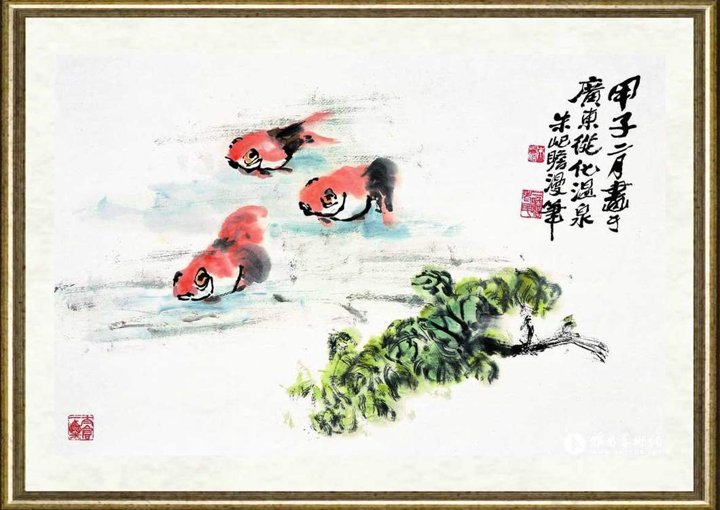 甲子二月畫于
廣東從化温泉
朱屺瞻漫筆
雅昌藝術網